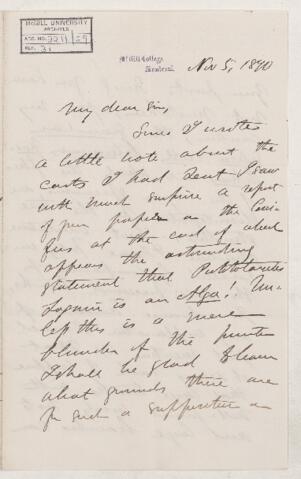 McGILL UNIVERSITY
ARCHIVES
ACC. NO. 2211
REF.
McGill College,
Montreal.
Nov 5, 1890
My dear Sir,
Since I wrote
a little note about the
casts I had sent I saw
with much surprise a report
of your paper on the Coni-
fers at the end of which
appears the astounding
statement that Prototaxites
Logani is an Alga! Un-
less this is a mere
blunder of the printer
I shall be glad to learn
what grounds there are
for such a supposition as